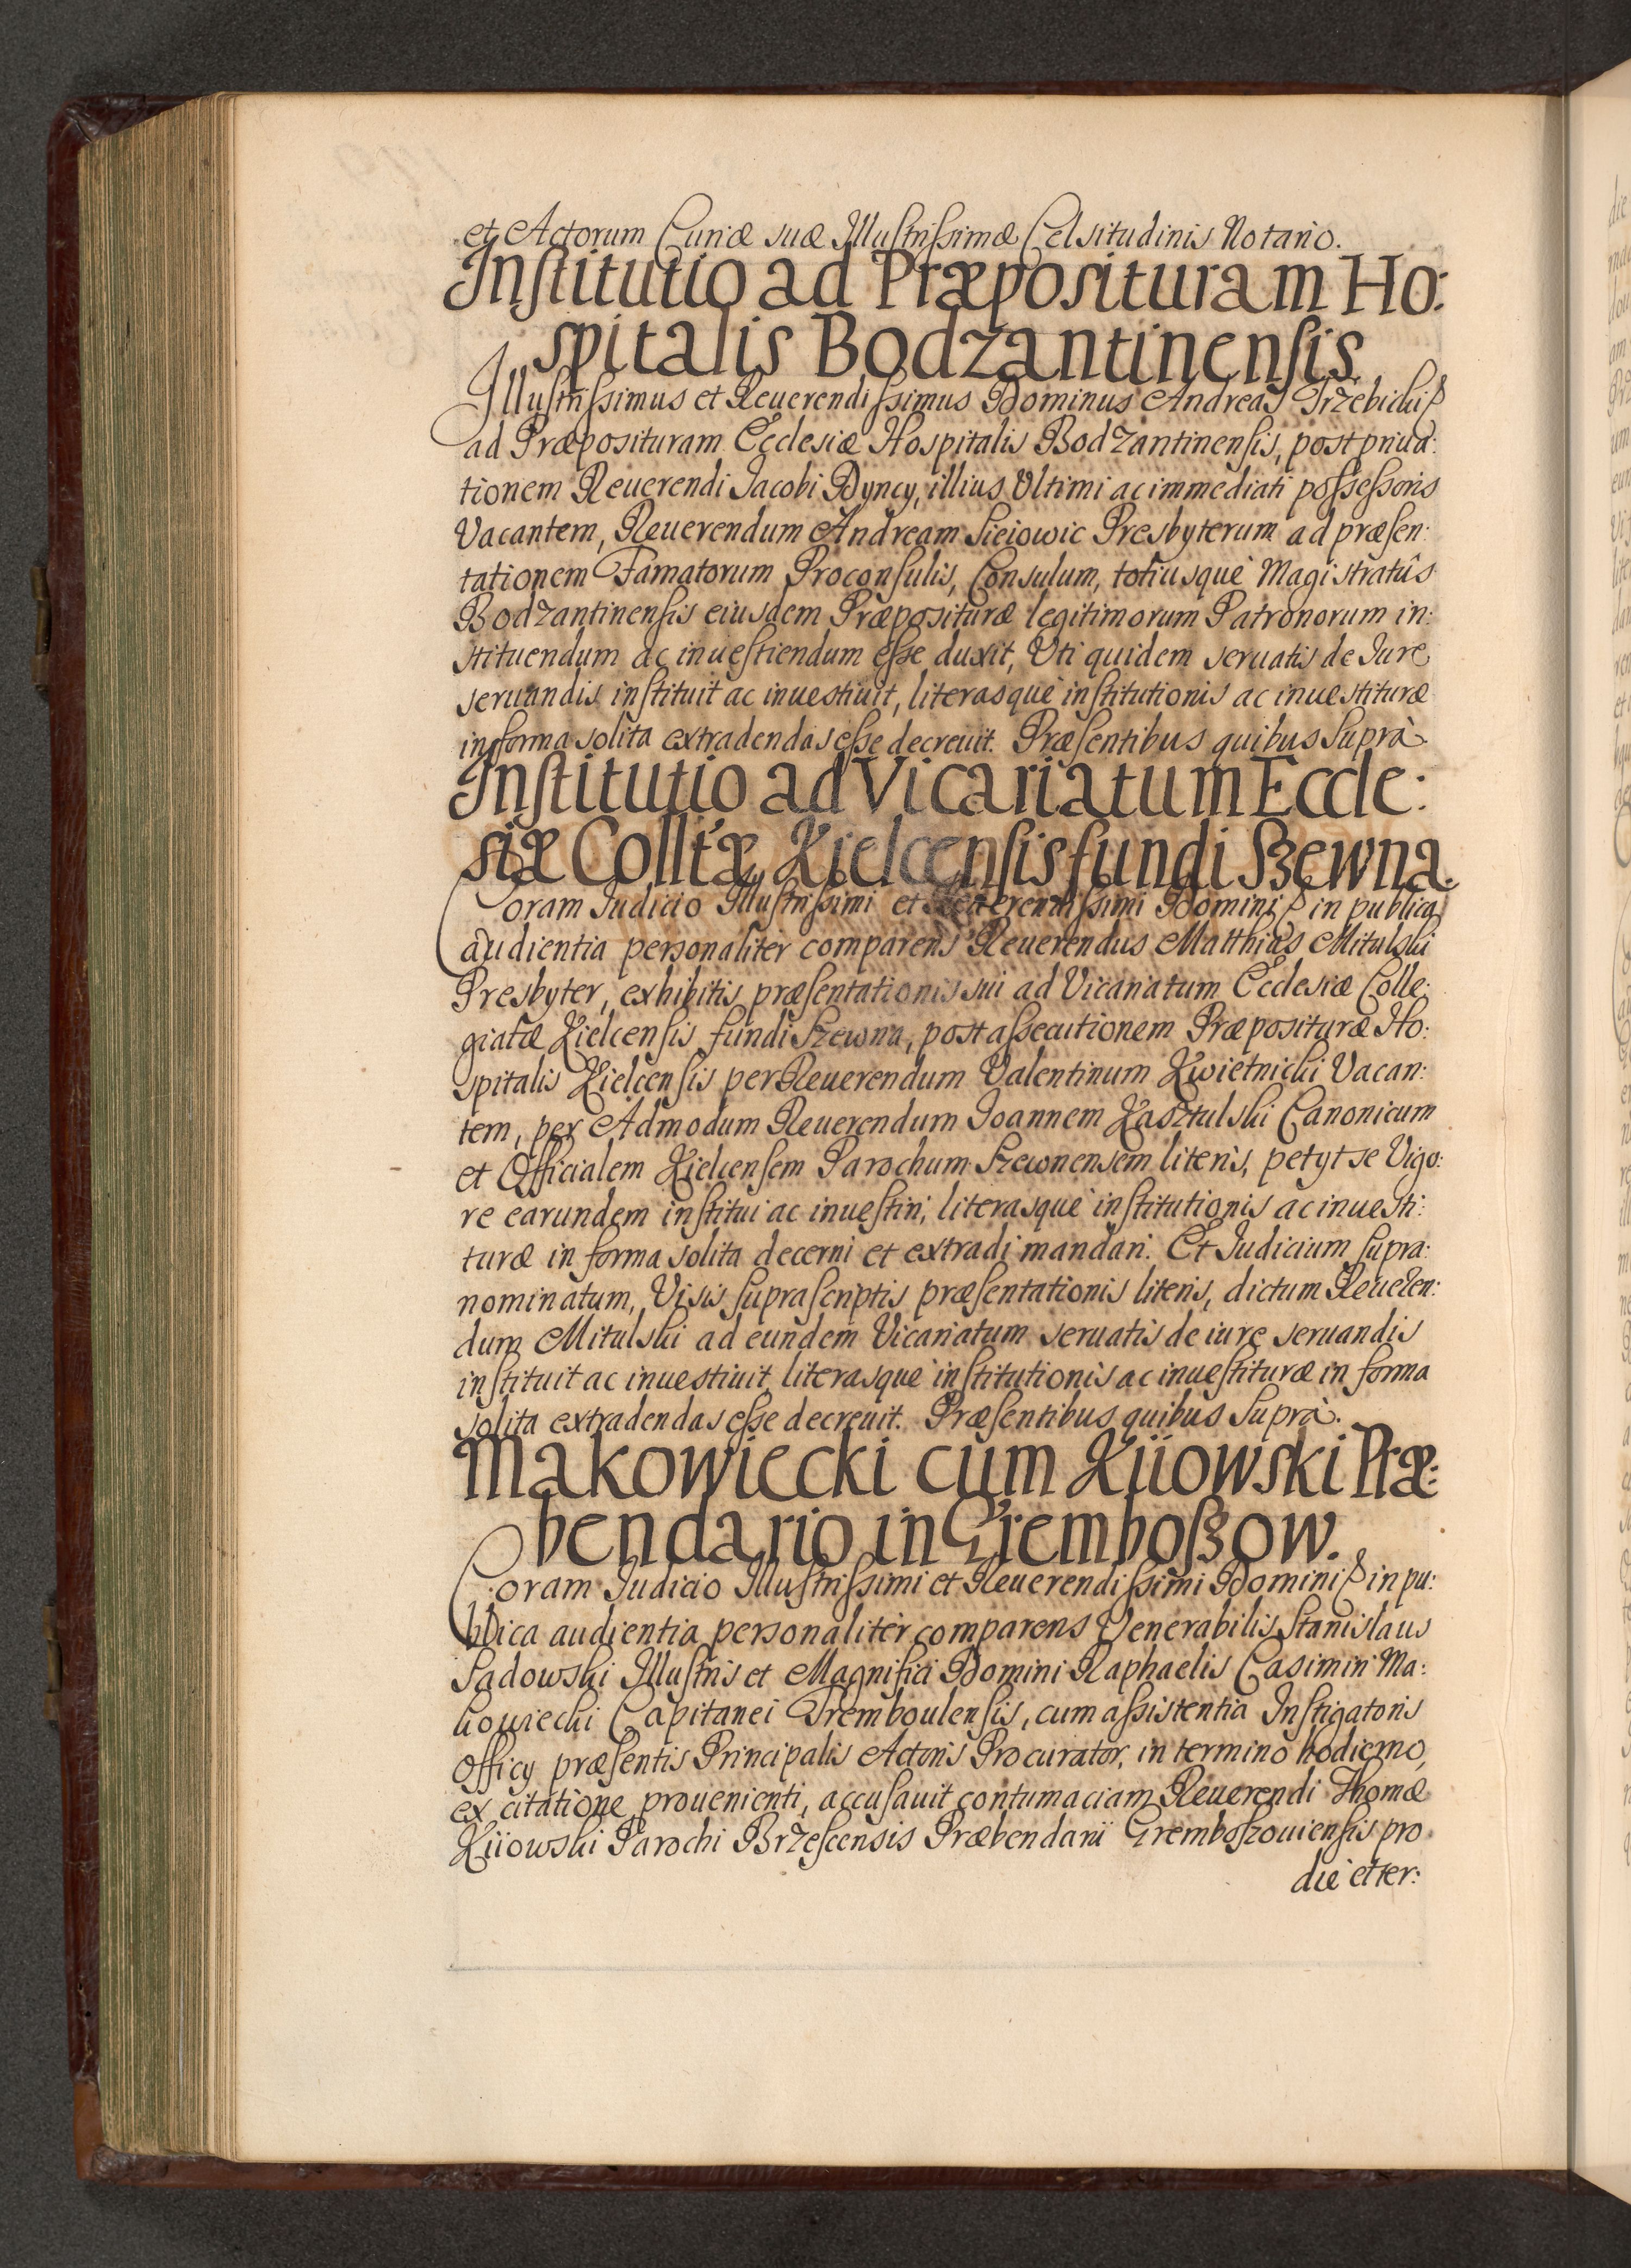 et Actorum Curiæ suæ Illustrissimæ Celsitudinis Notario.
Institutio ad Præposituram Ho:
spitalis Bodzantinensis
Illustrissimus et Reuerendissimus Dominus Andreas Trzebicki
ad Præposituram Ecclesiæ Hospitalis Bodzantinensis, post priua:
tionem Reuerendi Jacobi Dyncy, illius Vltimi ac immediati possessoris
Vacantem, Reuerendum Andream Siciowic Presbyterum ad præsen:
tationem Famatorum Proconsulis, Consulum, totiusque Magistratûs
Bodzantinensis eiusdem Præposituræ legitimorum Patronorum in:
stituendum ac inuestiendum esse duxit, Vti quidem seruatis de Jure
seruandis instituit ac inuestiuit, literasque institutionis ac inuestituræ
in forma solita extradendas esse decreuit. Præsentibus quibus Suprà.
Institutio ad Vicariatum Eccle:
siæ Coll'tæ Kielcensis fundi Szewna.
Coram Judicio Illustrissimi et Reuerendissimi Domini in publica
audientia personaliter comparens Reuerendus Matthias Mitulski
Presbyter, exhibitis præsentationis sui ad Vicariatum Ecclesiæ Colle:
giatæ Kielcensis fundi Szewna, post assecutionem Præposituræ Ho:
spitalis Kielcensis per Reuerendum Valentinum Kwietnicki Vacan:
tem, per Admodum Reuerendum Joannem Kasztulski Canonicum
et Officialem Kielcensem Parochum Szewnensem literis, petyt se Vigo:
re earundem institui ac inuestiri, literasque institutionis ac inuesti:
turæ in forma solita decerni et extradi mandari. Et Judicium supra:
nominatum, Visis suprascriptis præsentationis literis, dictum Reueren:
dum Mitulski ad eundem Vicariatum seruatis de iure seruandis
instituit ac inuestiuit, literasque institutionis ac inuestituræ in forma
solita extradendas esse decreuit. Præsentibus quibus Suprà.
Makowiecki cum Kiiowski Præ:
bendario in Gremboszow.
Coram Judicio Illustrissimi et Reuerendissimi Domini in pu:
blica audientia personaliter comparens Venerabilis Stanislaus
Sadowski Illustris et Magnifici Domini Raphaelis Casimiri Ma:
kowiecki Capitanei Tremboulensis, cum assistentia Instigatoris
Officy præsentis Principalis Actoris Procurator, in termino hodierno,
ex citatione prouenienti, accusauit contumaciam Reuerendi Thomæ
Kiiowski Parochi Brzescensis Præbendarii Gremboszouiensis pro
die et ter: